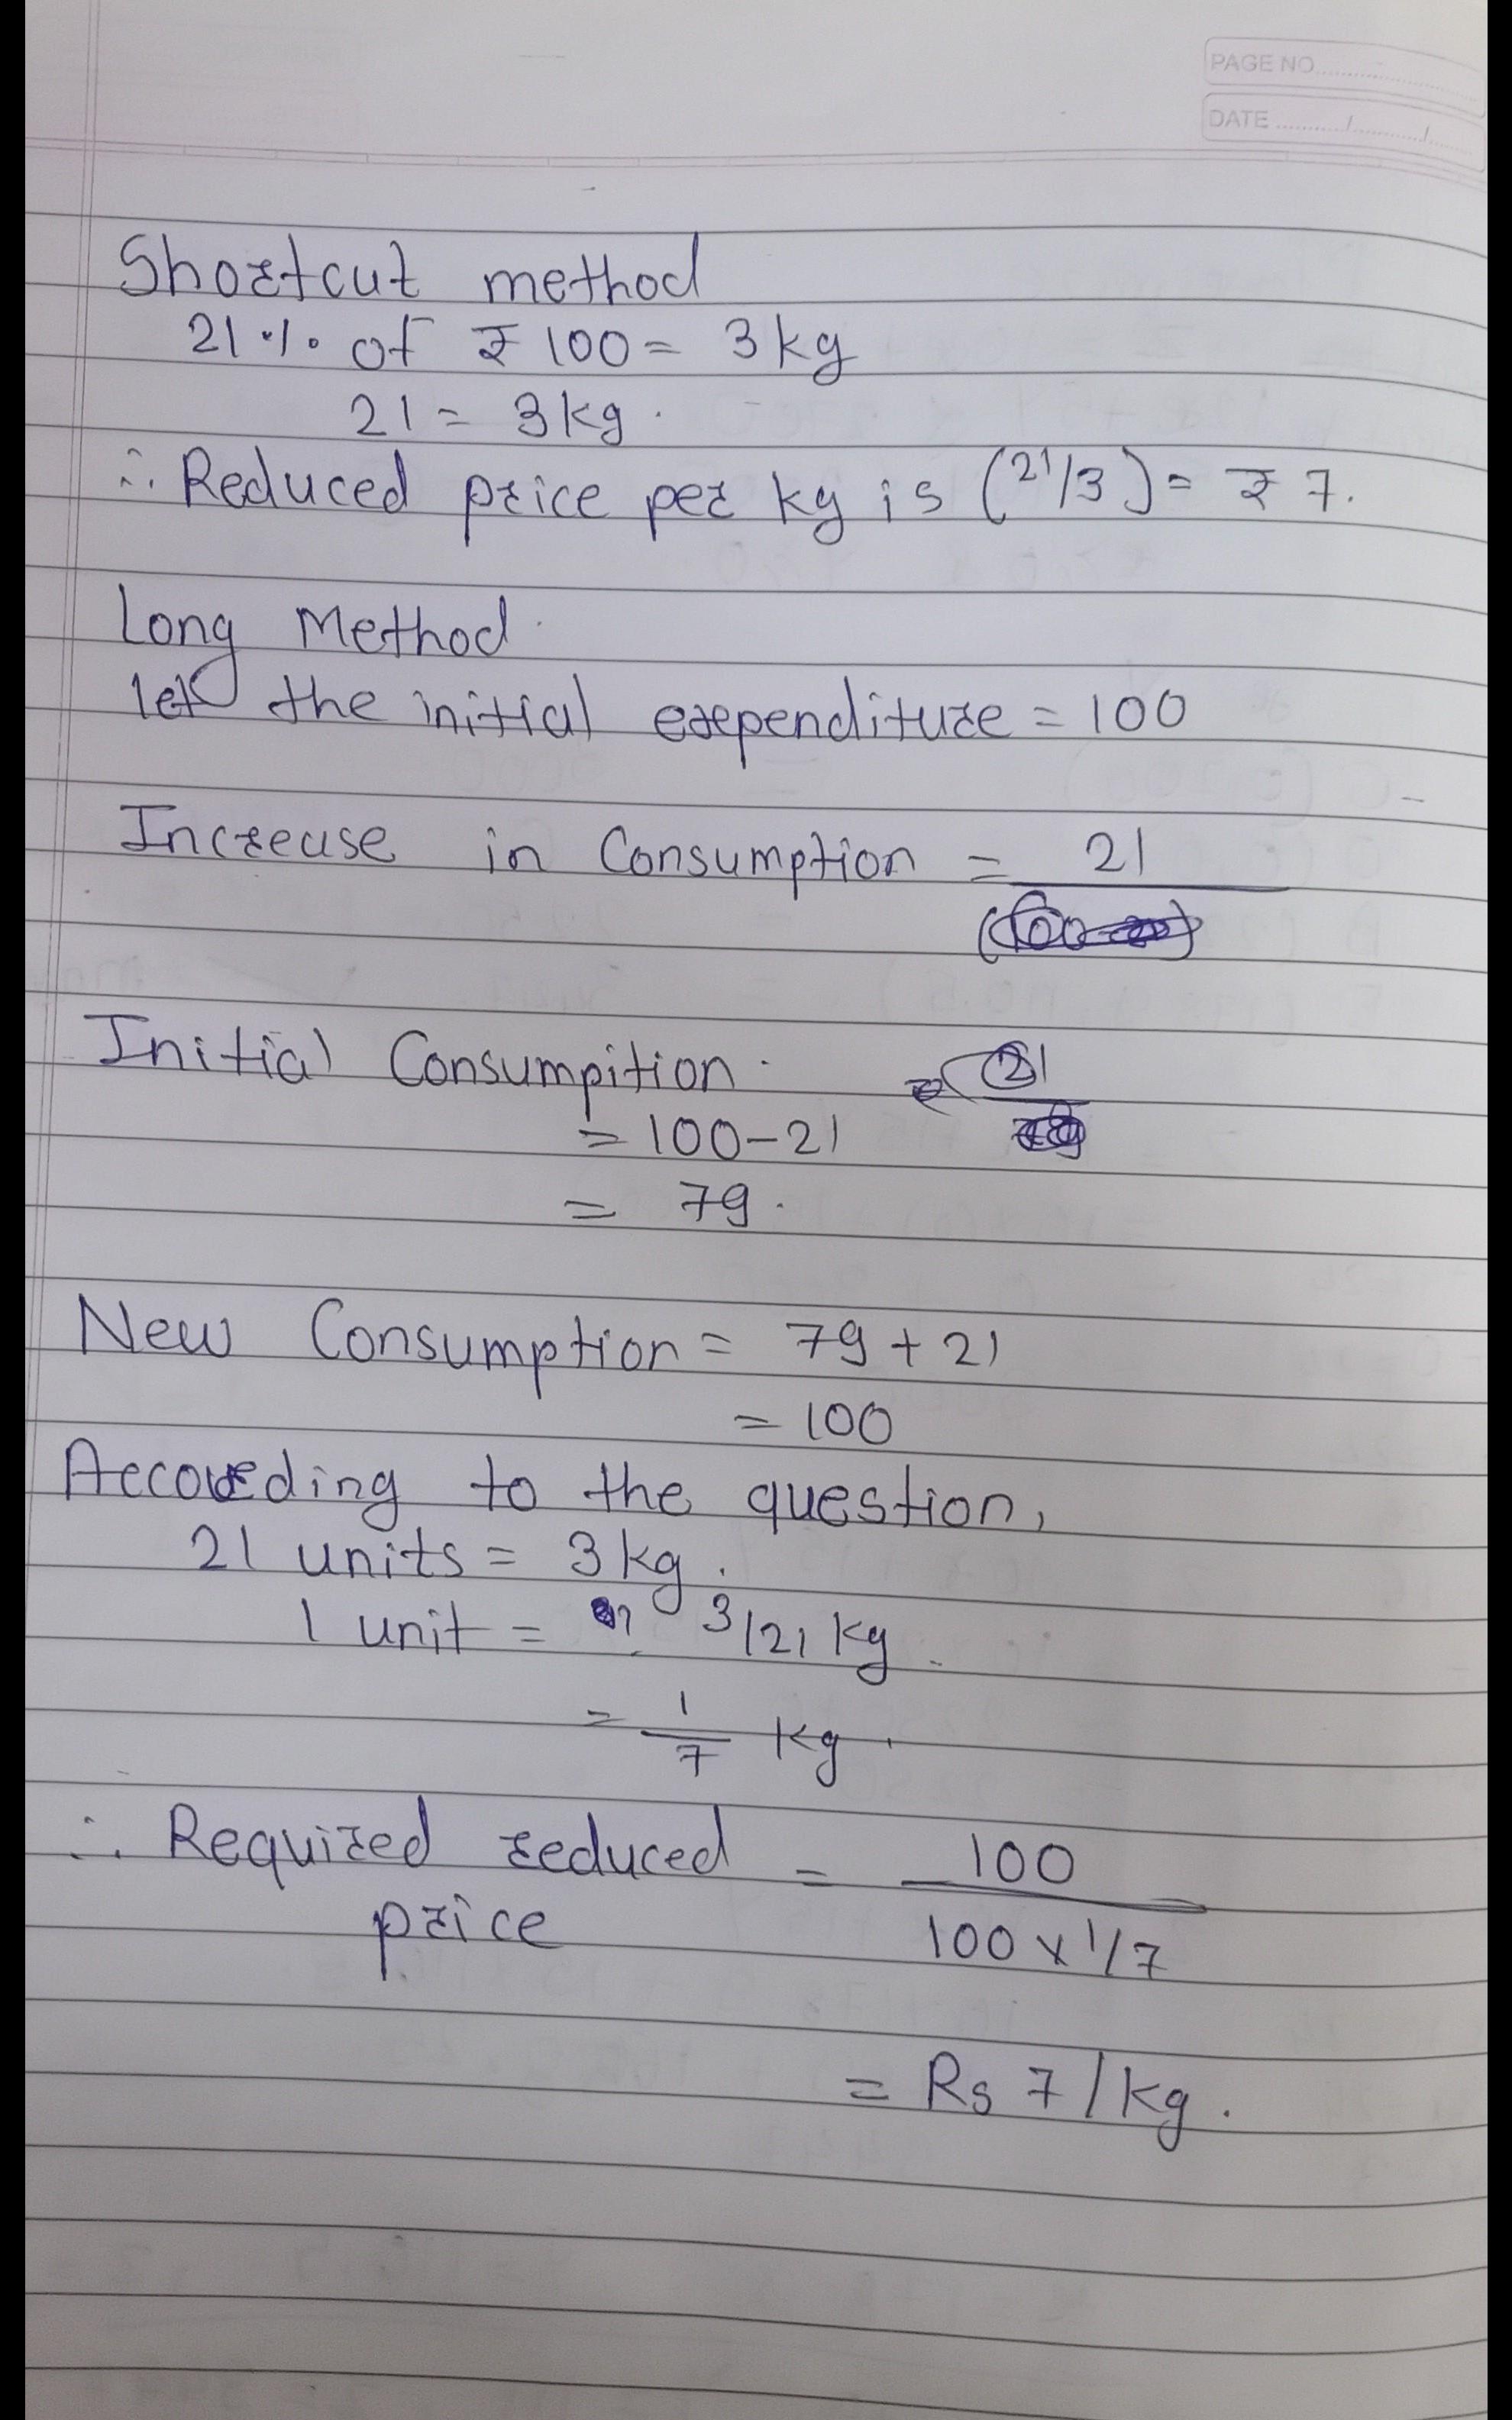 PAGE NO
DATE / /
Shortcut method
21 % of ₹ 100 = 3 kg
21 = 3 kg.
∴ Reduced price per kg is (21/3) = ₹ 7.
Long Method.
let the initial expenditure = 100
Increase in Consumption = 21
Initial Consumpition. 21
= 100 - 21
= 79.
New Consumption = 79 + 21
= 100
According to the question,
21 units = 3 kg.
1 unit = 3/21 kg.
= 1/7 kg.
∴ Required reduced = 100
price 100 x 1/7
= Rs 7 / kg.